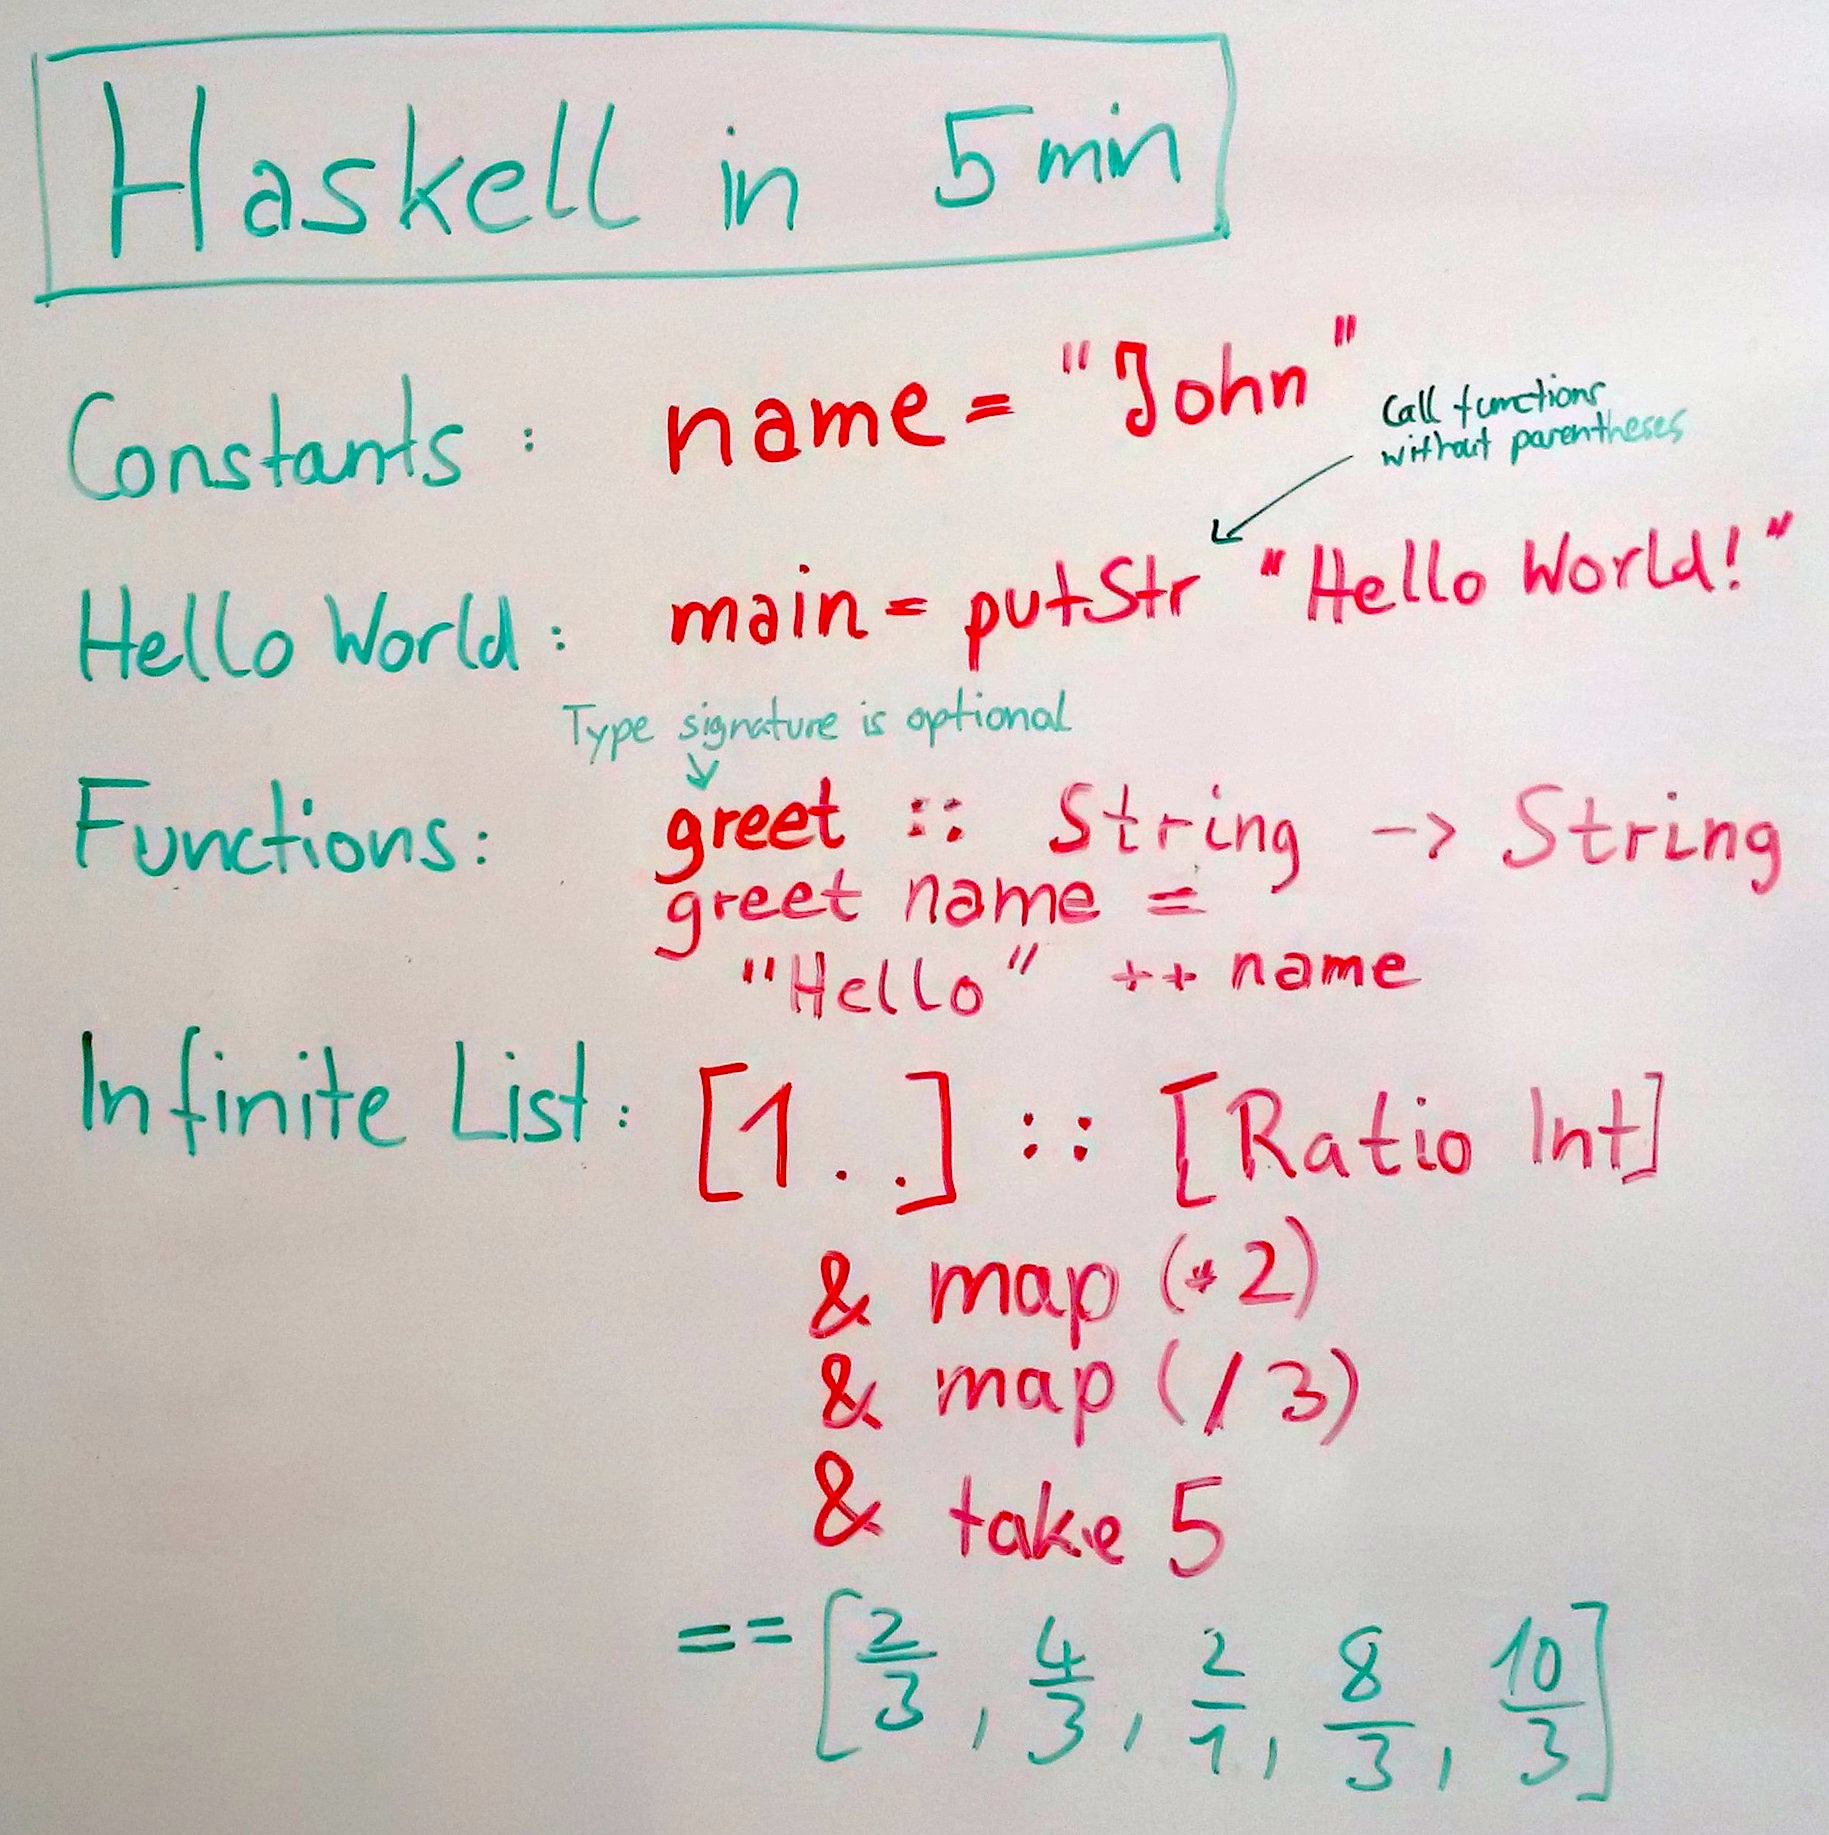 Haskell in 5 min
Constants : name = "John"
Call functions
without parentheses
Hello World : main = putStr "Hello World!"
Type signature is optional
Functions : greet :: String -> String
greet name =
"Hello" ++ name
Infinite List : [1..] :: [Ratio Int]
& map (*2)
& map (/3)
& take 5
== [2/3, 4/3, 2/1, 8/3, 10/3]